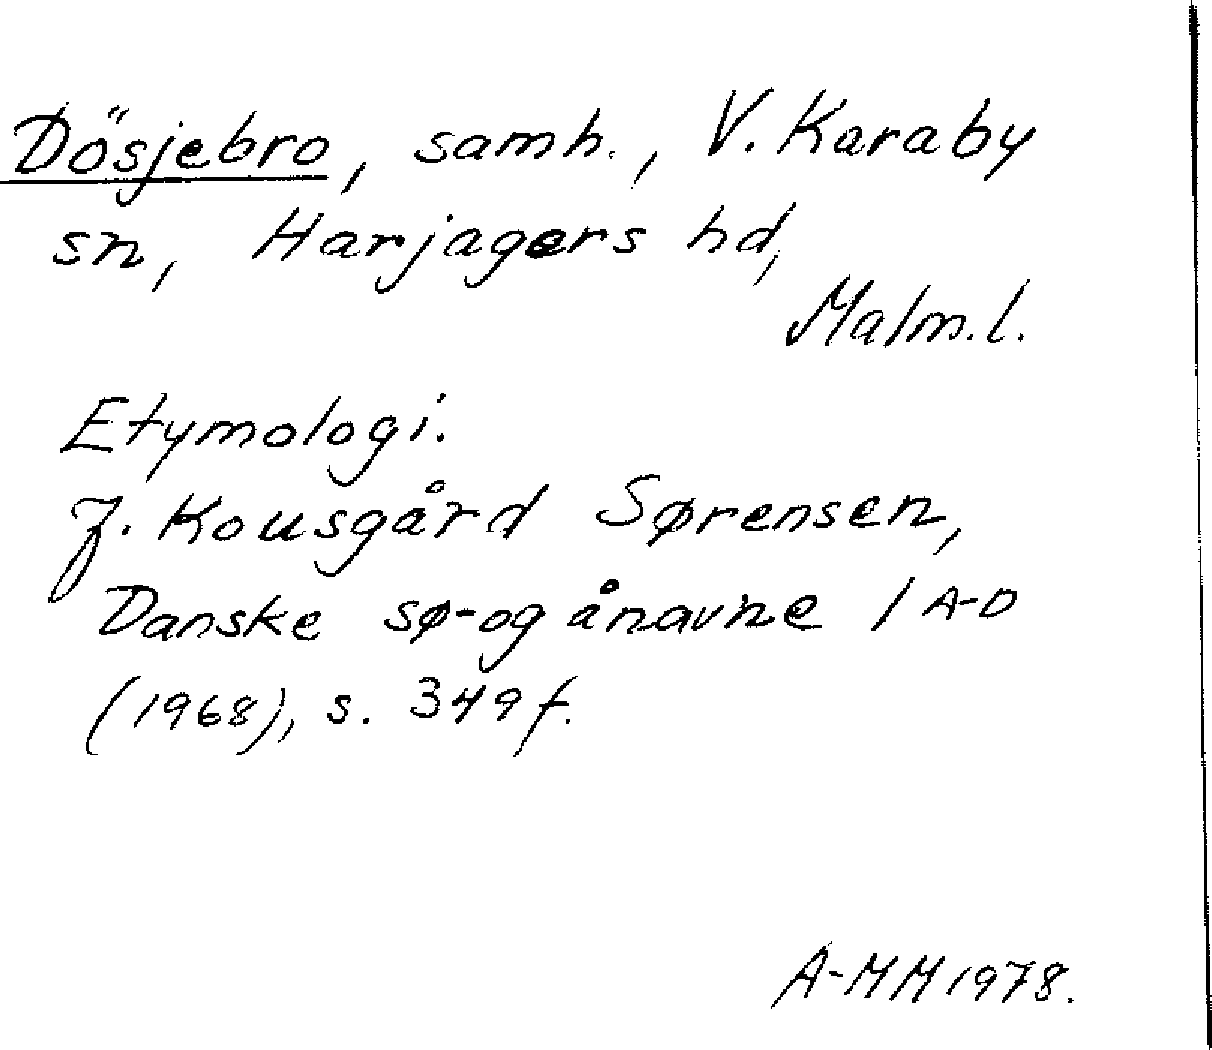 Dösjebro, samh., V. Karaby
sn, Harjagers hd,
Malm.l.
Etymologi.
J. Kousgård Sørensen,
Danske sø- og ånavne 1 A-D
(1968), s. 349 f.
A-MM 1978.